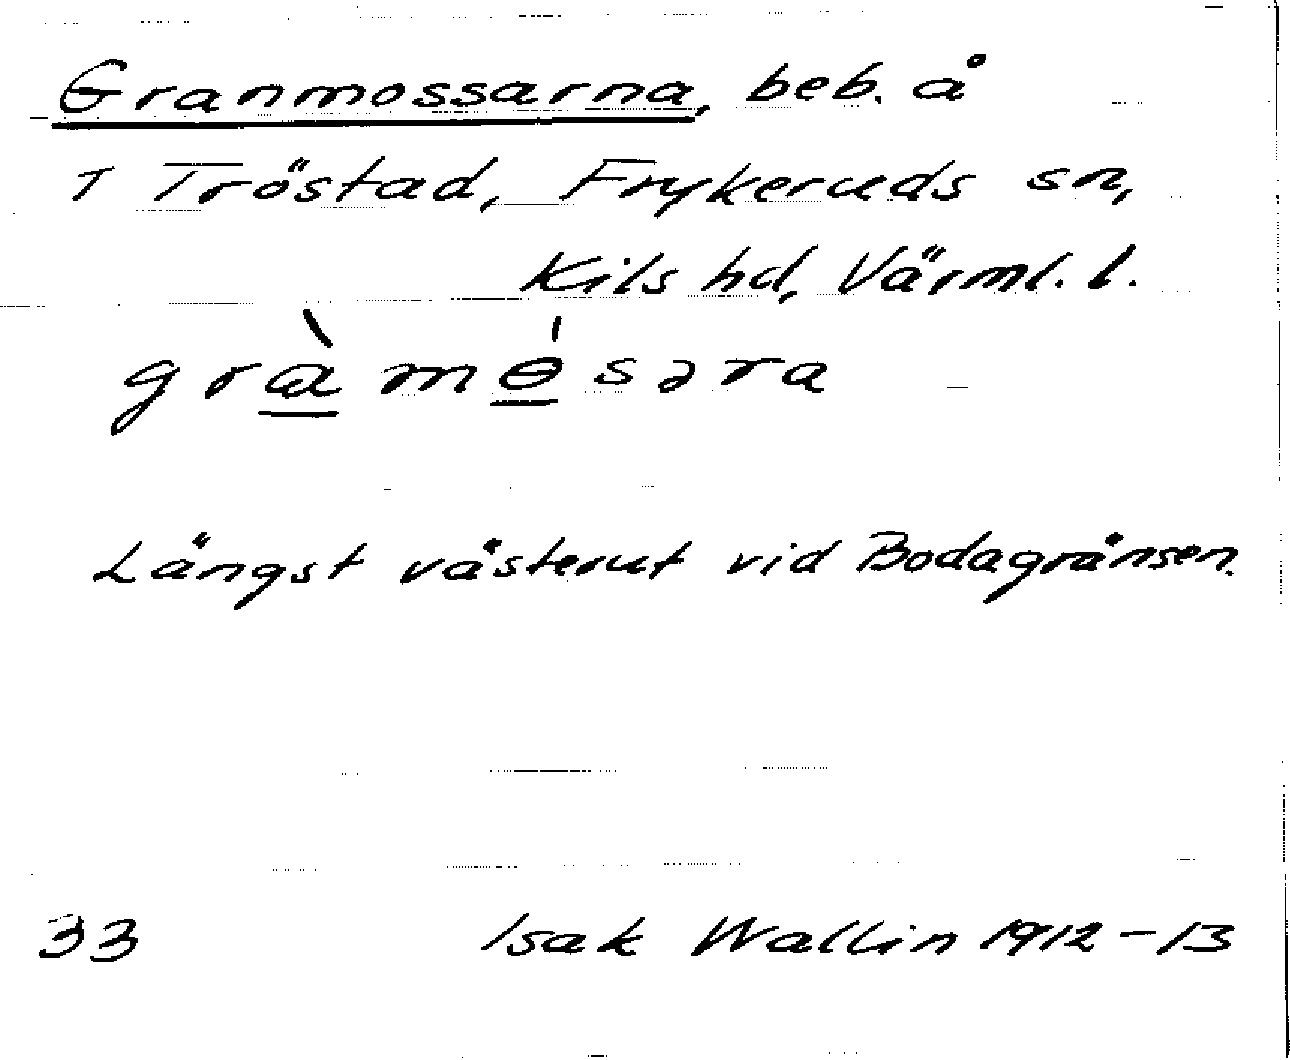 Granmossarna, beb. å
T Tröstad, Frykeruds sn,
Kils hd, Värml. l.
gràmɵ́səra
Längst västerut vid Bodagränsen.
33 Isak Wallin 1912-13